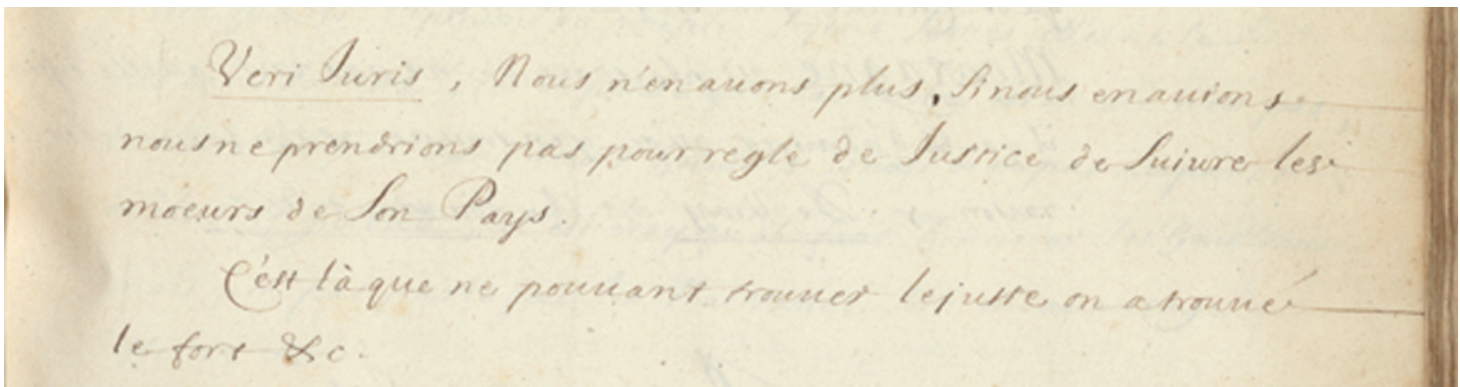 Veri Juris, Nous n'en auons plus, Si nous en auions
nous ne prendrions pas pour regle de Justice de Suiure les
moeurs de Son Pays.
C'est là que ne pouuant trouuer le juste on a trouué
le fort &c.